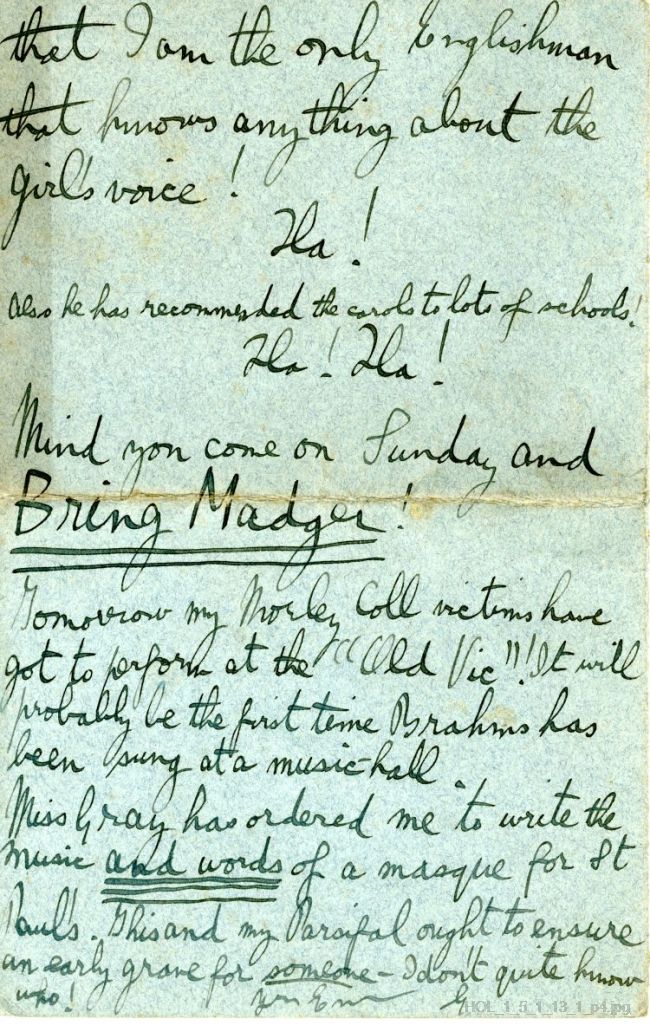 that I am the only Englishman
that knows anything about the
girl's voice!
Ha!
Also he has recommended the carols to lots of schools!
Ha! Ha!
Mind you come on Sunday and
Bring Madger!
Tomorrow my Morley Coll victims have
got to perform at the "Old Vic"! It will
probably be the first time Brahms has
been sung at a music-hall.
Miss Gray has ordered me to write the
music and words of a masque for St
Paul's. This and my Parsifal ought to ensure
an early grave for someone – I don't quite know
who! Yrs Ever G
HOL_1_5_1_13_1_p4.jpg